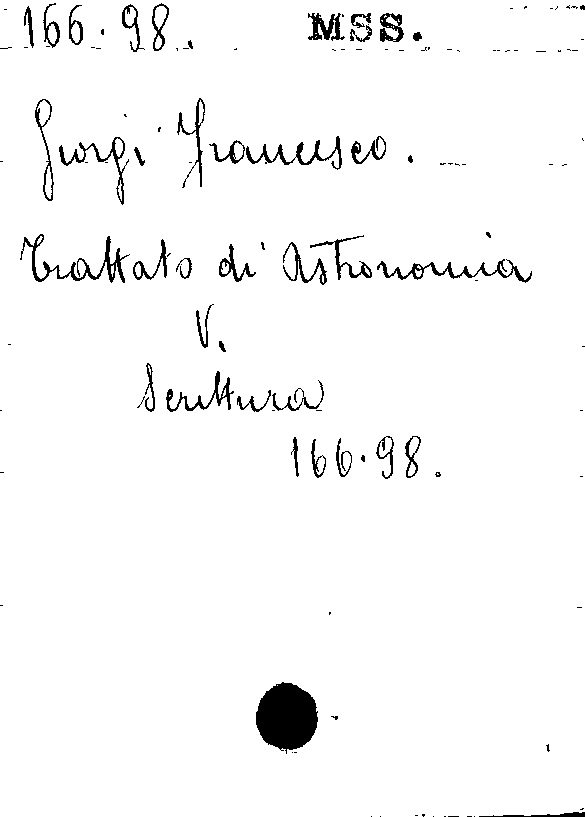 166.98. MSS.
Giorgi Francesco.
Trattato di Astronomia
V.
Scrittura
166.98.